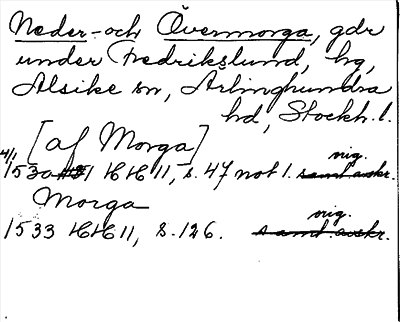 Neder- och Övermorga, gdr
under Fredrikslund, hg,
Alsike sn, Ärlinghundra
hd, Stockh. l.
[af Morga]
4/1 1530 HH 11, s. 47 not 1. orig. samt. avskr.
Morga
1533 HH 11, s. 126. orig. samt. avskr.